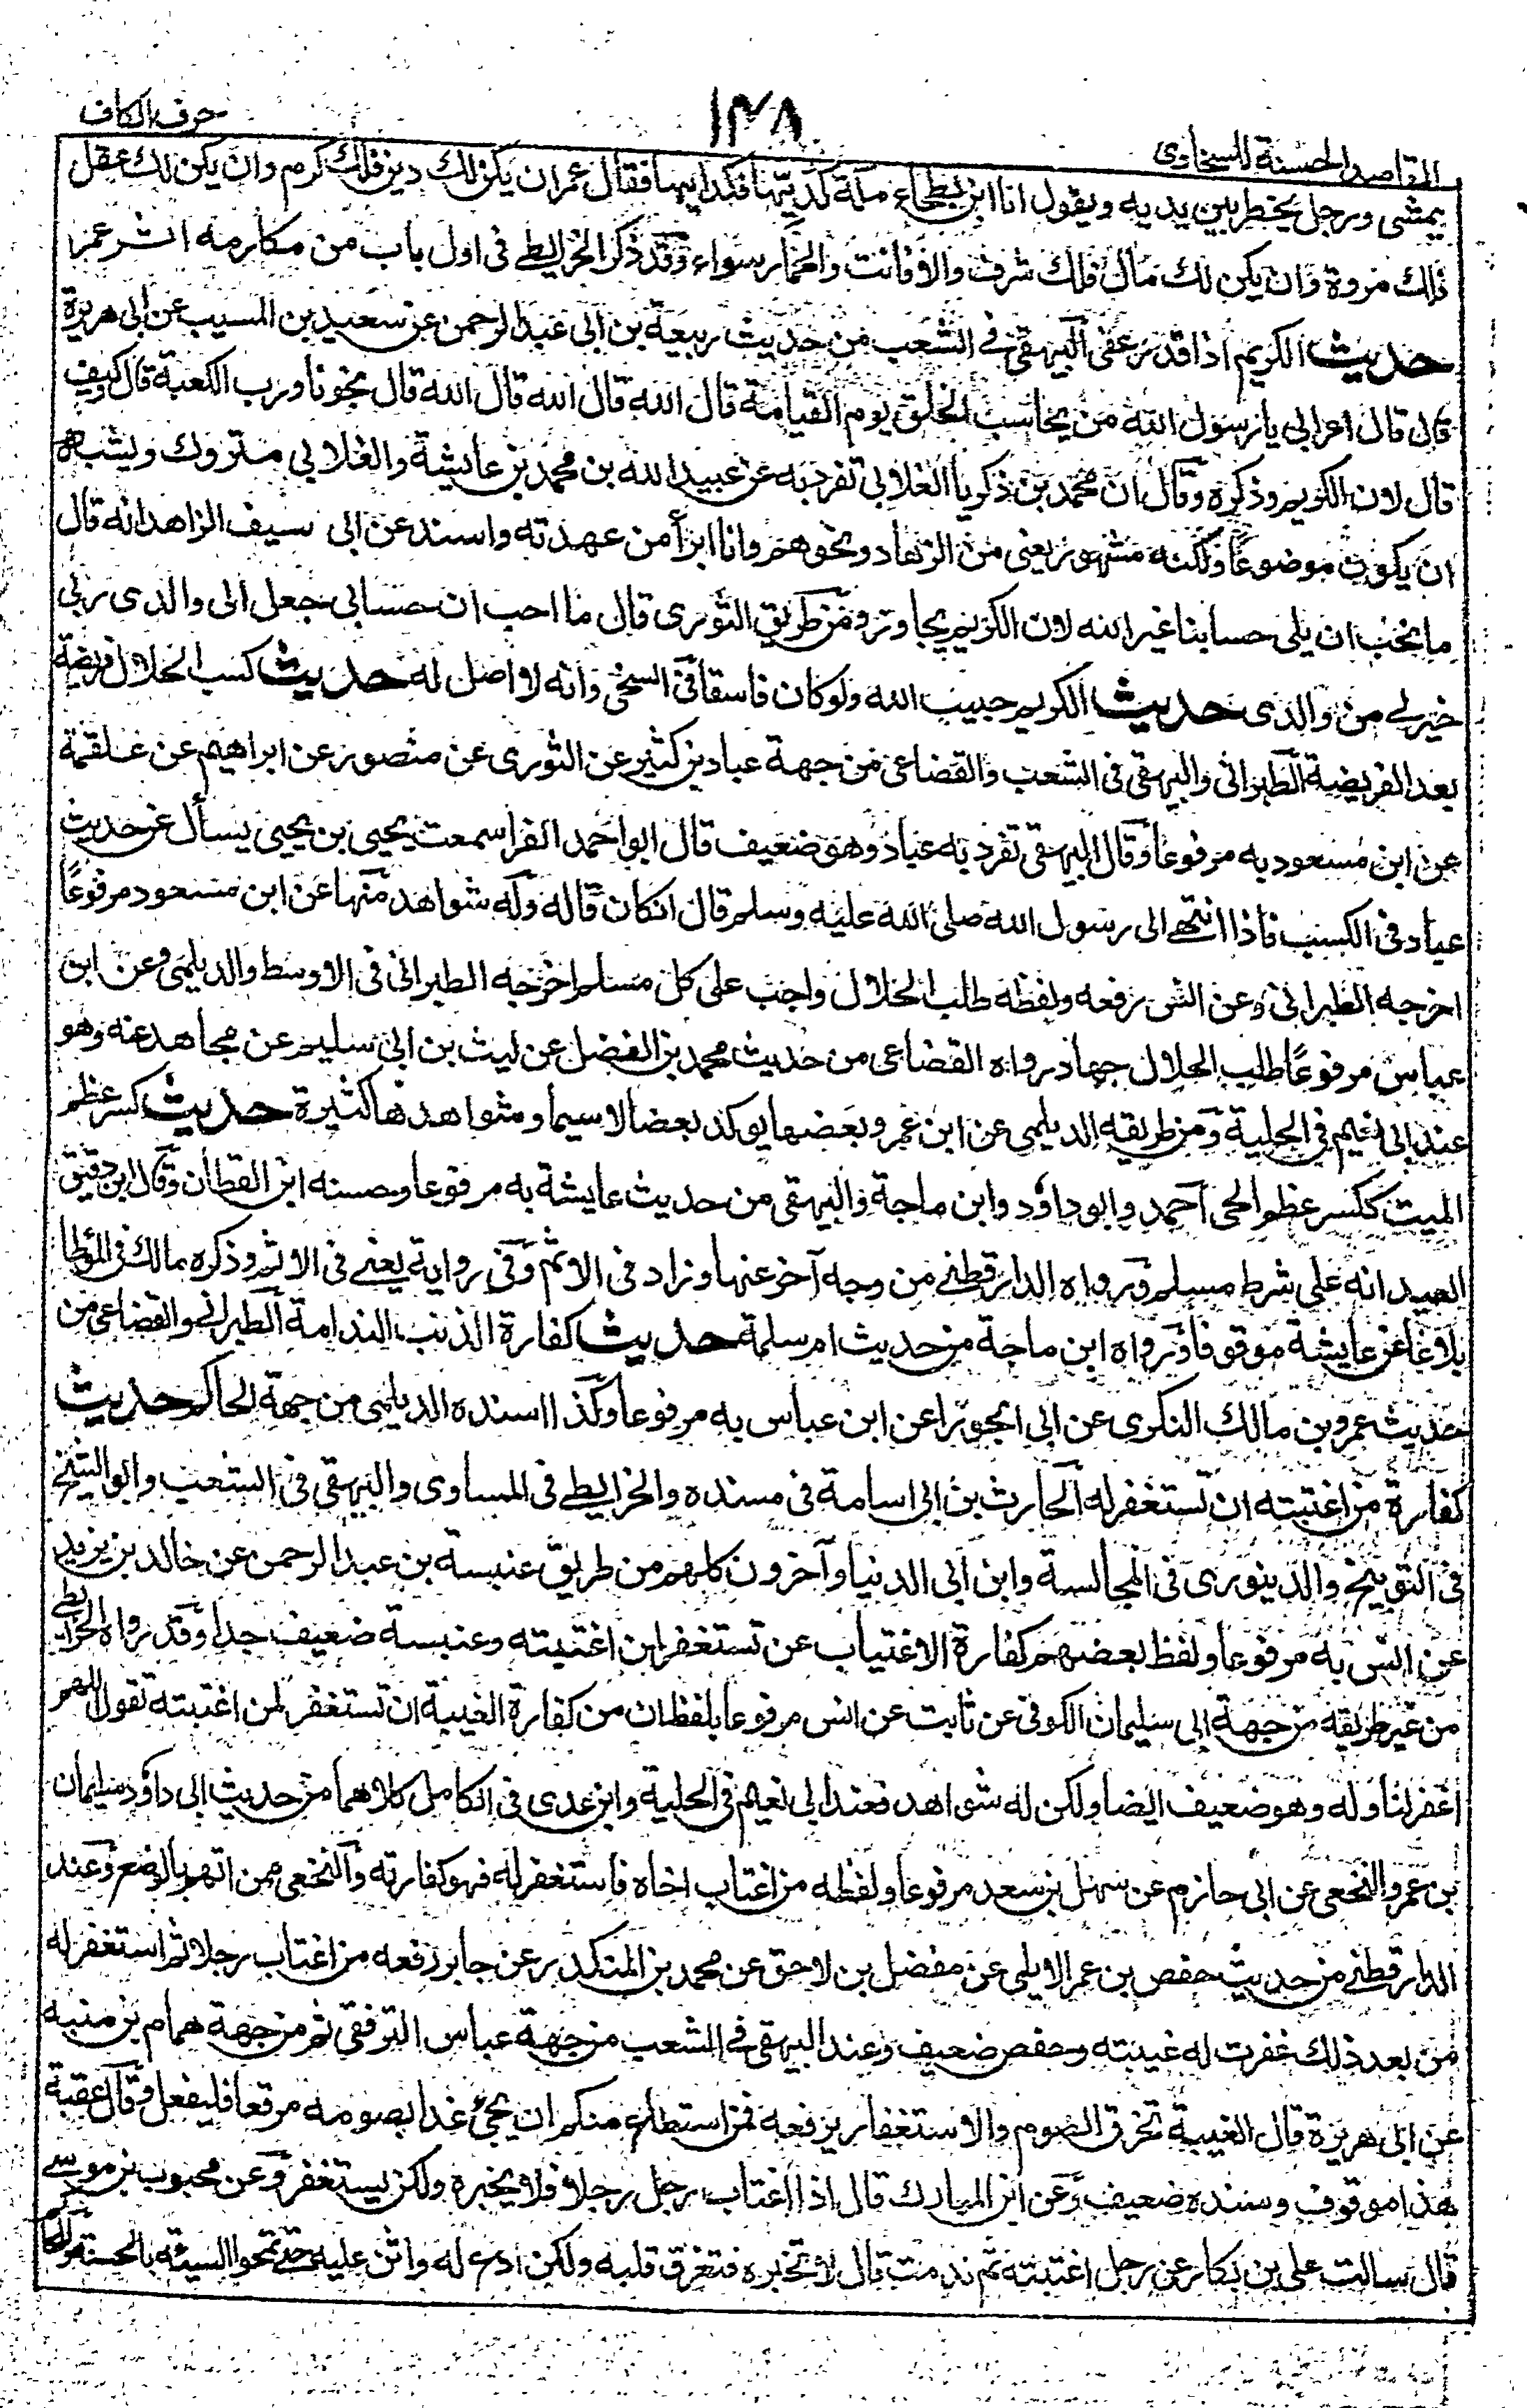 المقاصد الحسنة للسخاوى
١٣٨
حرف الكاف
يمشى ورجل يخطر بين يديه ويقول انا ابن بطحاء مكة كديها فكدايها فقال عمر ان يكن لك دين فلك كرم وان يكن لك عقل
فلك مروة وان يكن لك مال فلك شرف والا فانت والحمار سواء وقد ذكر الخرايطي فى اول باب من مكارمه اثر عمر
حديث الكريم اذا قدر عفى البيهقي في الشعب من حديث ربيعة بن ابى عبد الرحمن عن سعيد بن المسيب عن ابى هريرة
قال قال اعرابي يا رسول الله من يحاسب الخلق يوم القيامة قال الله قال الله قال الله قال نجونا ورب الكعبة قال وكيف
قال لان الكريم وذكره وقال ان محمد بن ذكريا الغلابي تفرد به عن عبيد الله بن محمد بن عايشة والغلابي متروك ويشبه
ان يكون موضوعاً ولكنه مشهور يعنى من الزهاد ونحوهم وانا ابرأ من عهدته واسند عن ابى سيف الزاهد انه قال
ما يحب ان يلى حسابنا غير الله لان الكريم يجاوز ومن طريق الثورى قال ما احب ان حسابي جعل الى والدى ربي
خير لي من والدى حديث الكريم حبيب الله ولو كان فاسقا فى السخى وانه لا اصل له حديث كسب الحلال فريضة
بعد الفريضة الطبرانى والبيهقى فى الشعب والقضاعى من جهة عباد بن كثير عن الثورى عن منصور عن ابراهيم عن علقمة
عن ابن مسعود به مرفوعاً وقال البيهقى تفرد به عباد وهو ضعيف قال ابو احمد الفرا سمعت يحيى بن يحيى يسأل عن حديث
عباد فى الكسب فاذا انتهى الى رسول الله صلى الله عليه وسلم قال انكان قاله وله شواهد منها عن ابن مسعود مرفوعاً
اخرجه الطبرانى وعن انس رفعه ولفظه طلب الحلال واجب على كل مسلم اخرجه الطبرانى فى الاوسط والديلمى وعن ابن
عباس مرفوعاً طلب الحلال جهاد رواه القضاعى من حديث محمد بن الفضل عن ليث بن ابى سليم عن مجاهد عنه وهو
عند ابى نعيم فى الحلية ومن طريقه الديلمى عن ابن عمر وبعضها يوكد بعضا لا سيما وشواهدها كثيرة حديث كسر عظم
الميت ككسر عظم الحى احمد وابو داود وابن ماجة والبيهقى من حديث عايشة به مرفوعا وحسنه ابن القطان وقال ابن دقيق
العيد انه على شرط مسلم ورواه الدارقطنى من وجه آخر عنها وزاد فى الاثم وفى رواية يعنى فى الاثم وذكره مالك فى المؤطا
بلاغا عن عايشة موقوفا ورواه ابن ماجة من حديث ام سلمة حديث كفارة الذنب الندامة الطبرانى والقضاعى من
حديث عمرو بن مالك النكرى عن ابى الجوزا عن ابن عباس به مرفوعا وكذا اسنده الديلمى من جهة الحاكم حديث
كفارة من اغتبته ان تستغفر له الحارث بن ابى اسامة فى مسنده والخرايطي فى المساوى والبيهقى فى الشعب وابو الشيخ
فى التوبيخ والدينورى فى المجالسة وابن ابى الدنيا وآخرون كلهم من طريق عنبسة بن عبد الرحمن عن خالد بن يزيد
عن انس به مرفوعا ولفظ بعضهم كفارة الاغتياب عن تستغفر ابن اغتبته وعنبسة ضعيف جدا وقد رواه الخرايطي
من غير طريقه من جهة ابى سليمان الكوفى عن ثابت عن انس مرفوعا بلفظ ان من كفارة الغيبة ان تستغفر لمن اغتبته تقول اللهم
اغفر لنا وله وهو ضعيف ايضا ولكن له شواهد فعند ابى نعيم فى الحلية وابن عدى فى الكامل كلاهما من حديث ابى داود سليمان
بن عمرو النخعى عن ابى حازم عن سهل بن سعد مرفوعا ولفظه من اغتاب اخاه فاستغفر له فهو كفارته والنخعى ممن اتهم بالوضع وعند
الدارقطنى من حديث حفص بن عمر الايلى عن مفضل بن لاحق عن محمد بن المنكدر عن جابر رفعه من اغتاب رجلا ثم استغفر له
من بعد ذلك غفرت له غيبته وحفص ضعيف وعند البيهقى في الشعب من جهة عباس الترقفى ثم من جهة همام بن منبه
عن ابى هريرة قال الغيبة تخرق الصوم والاستغفار يرفعه فمن استطاع منكم ان يجئ غدا بصومه مرقعا فليفعل وقال عقبة
هذا موقوف وسنده ضعيف وعن ابن المبارك قال اذا اغتاب رجل رجلا فلا يخبره ولكن يستغفر وعن محبوب بن موسى
قال سالت على بن بكار عن رجل اغتبته ثم ندمت قال لا تخبره فتغرق قلبه ولكن ادع له واثن عليه حتى تمحوا السيئة بالحسنة